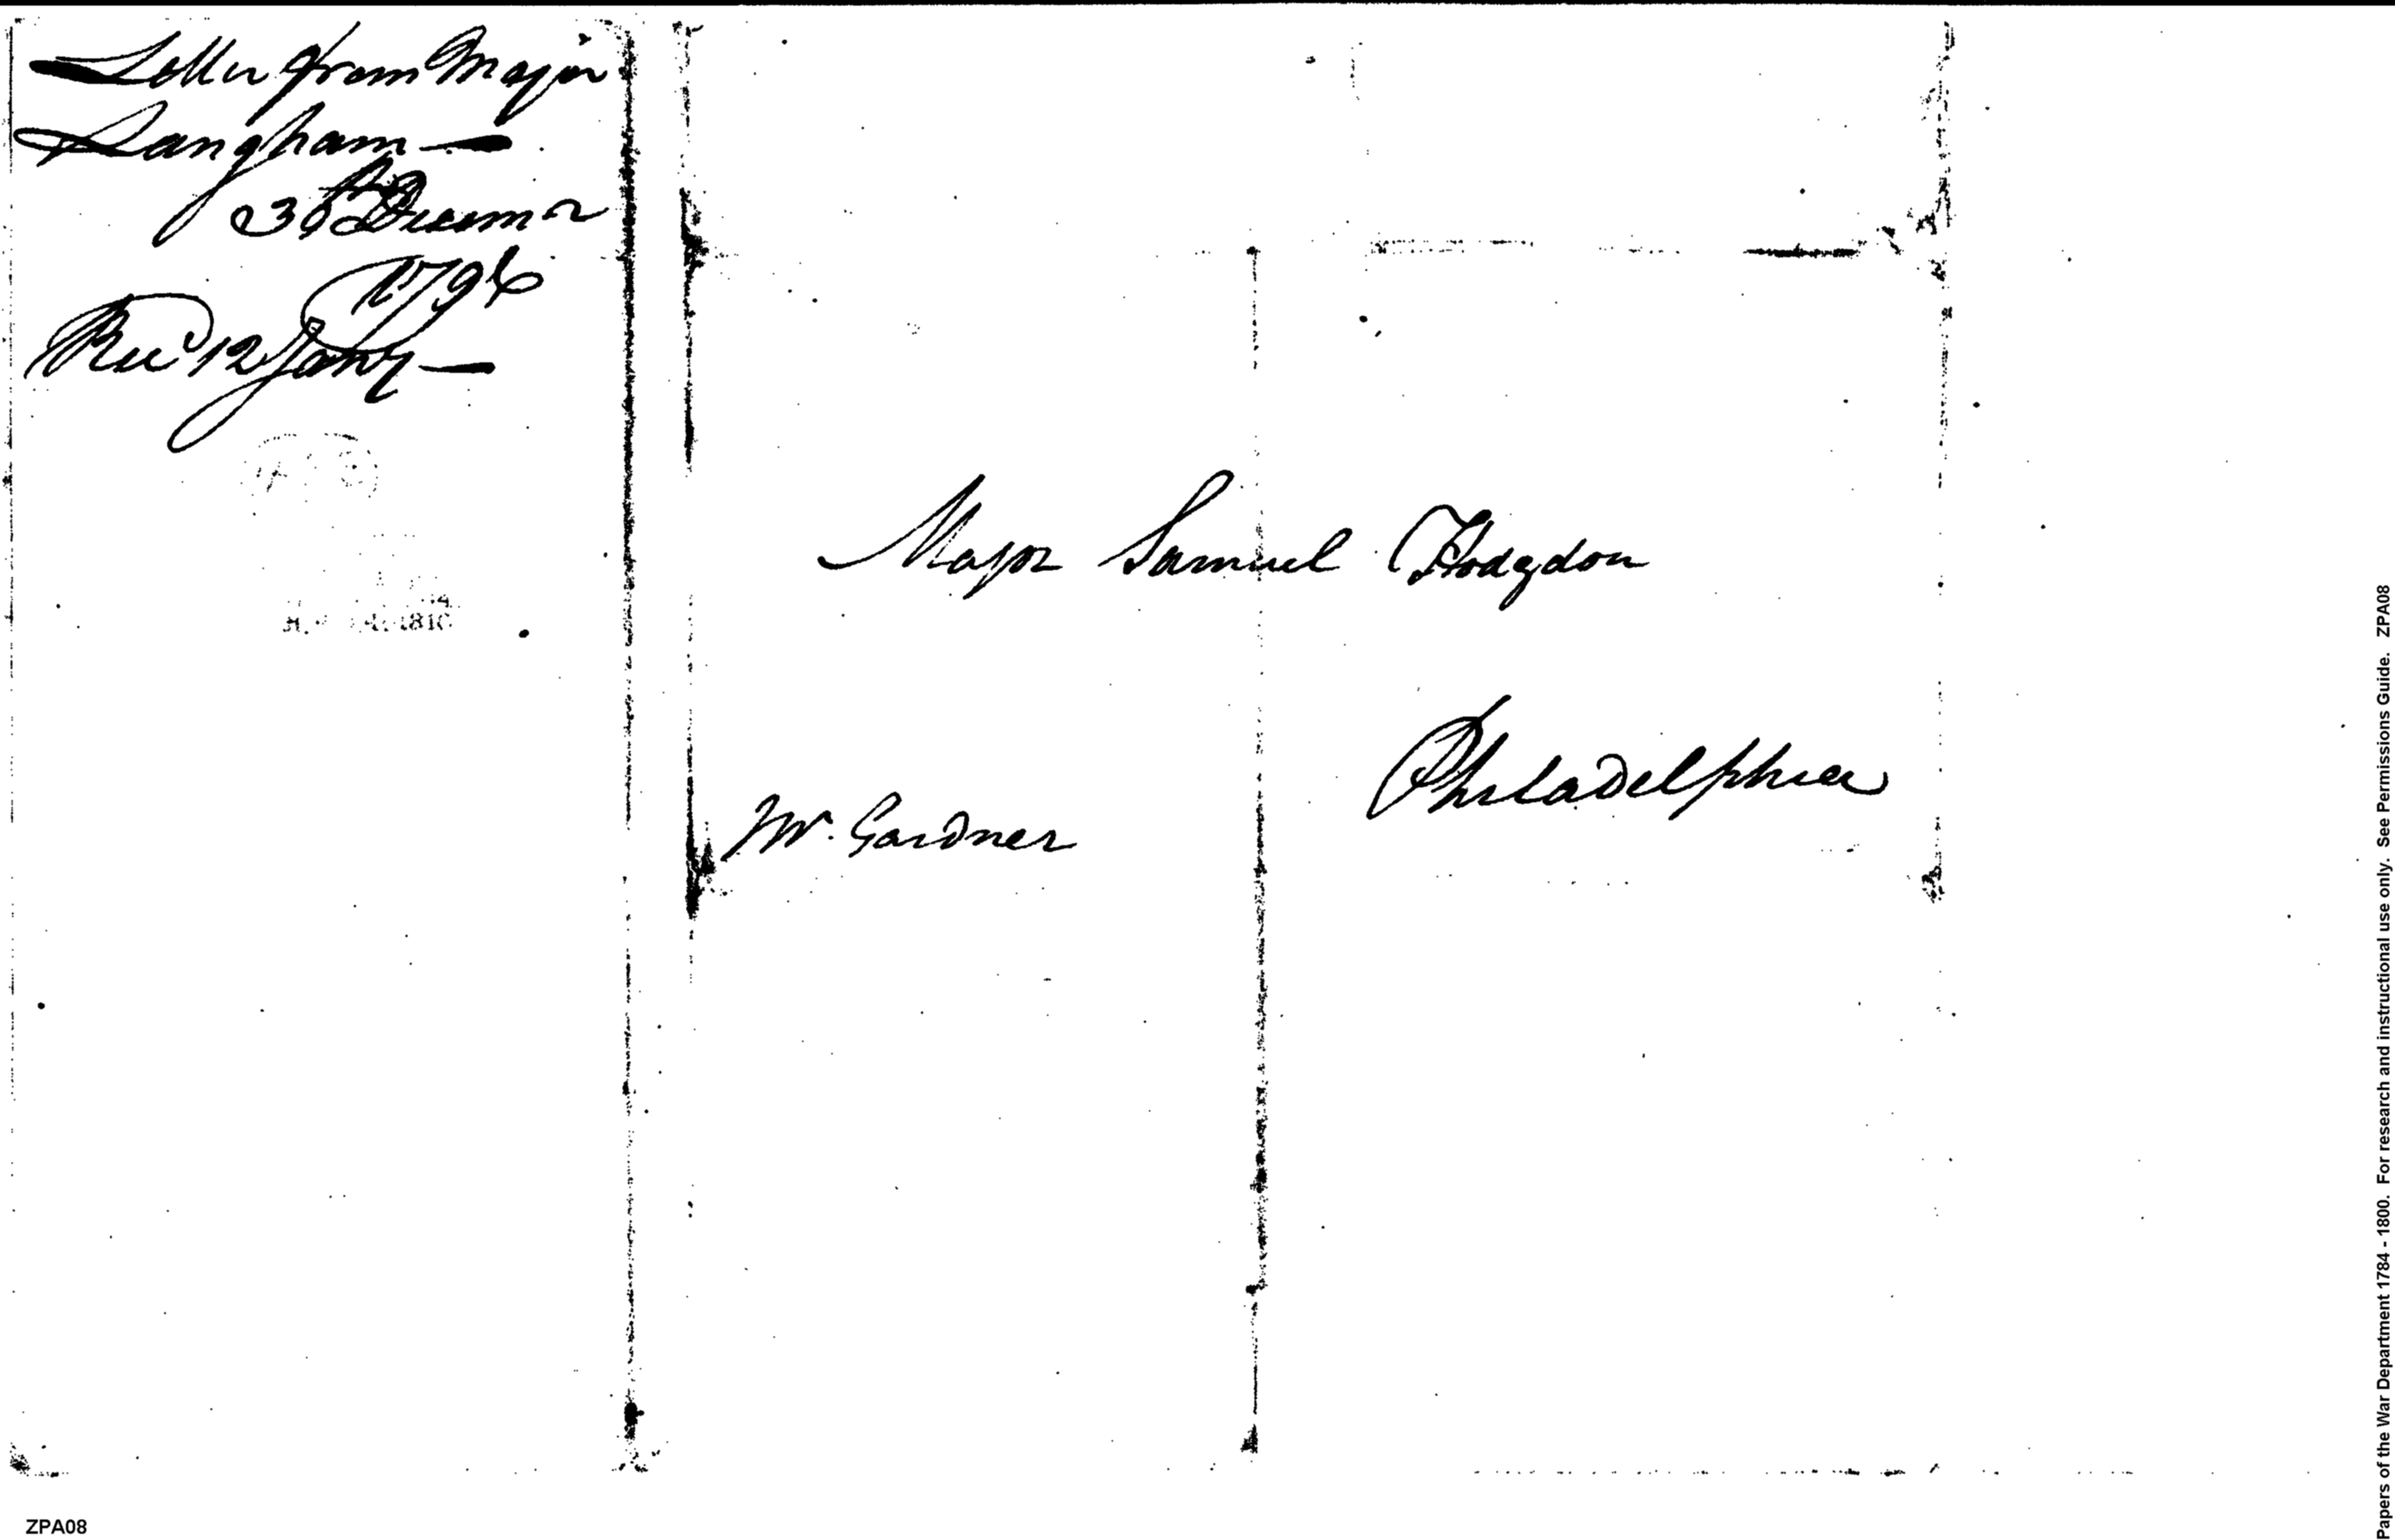 Letter from Major
Langham —
30th Decemr
1796
Recd 12 Jany —
Major Samuel Hodgdon
Philadelphia
Mr. Gardner
ZPA08
Papers of the War Department 1784 - 1800. For research and instructional use only. See Permissions Guide. ZPA08